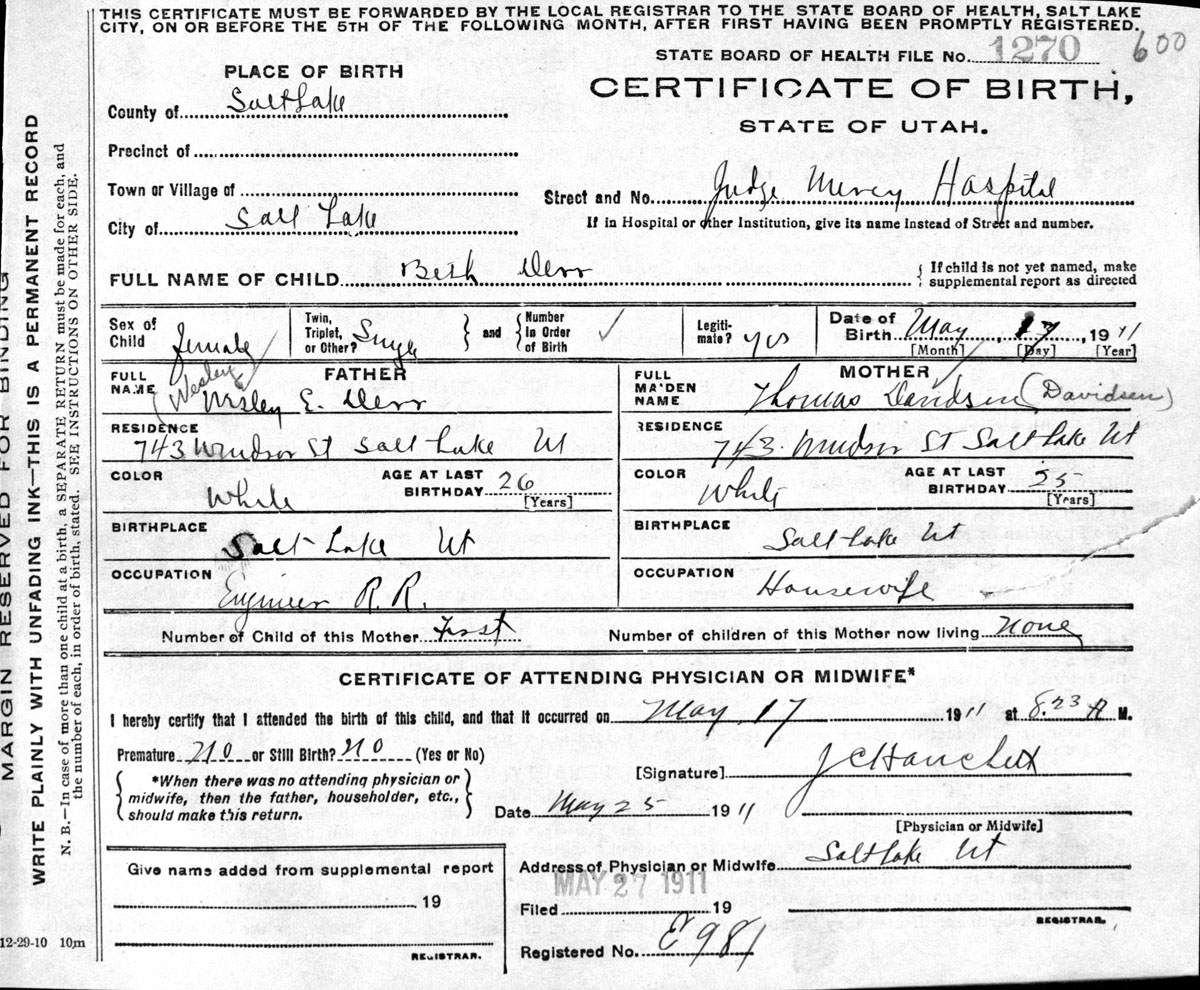 THIS CERTIFICATE MUST BE FORWARDED BY THE LOCAL REGISTRAR TO THE STATE BOARD OF HEALTH, SALT LAKE
CITY, ON OR BEFORE THE 5TH OF THE FOLLOWING MONTH, AFTER FIRST HAVING BEEN PROMPTLY REGISTERED.
STATE BOARD OF HEALTH FILE No. 1270 600
CERTIFICATE OF BIRTH,
STATE OF UTAH.
PLACE OF BIRTH
County of Salt Lake
Precinct of
Town or Village of
City of Salt Lake
Street and No. Judge Mercy Hospital
If in Hospital or other Institution, give its name instead of Street and number.
FULL NAME OF CHILD Beth Derr
{ If child is not yet named, make
supplemental report as directed
Sex of Child female
Twin, Triplet, or Other? Single } and { Number in Order of Birth ✓
Legiti-mate? yes
Date of Birth May 17, 1911
[Month] [Day] [Year]
FATHER
FULL NAME (Wesley) Wesley E. Derr
RESIDENCE
743 Windsor St Salt Lake Ut
COLOR White
AGE AT LAST BIRTHDAY 26 [Years]
BIRTHPLACE
Salt Lake Ut
OCCUPATION
Engineer R.R.
MOTHER
FULL MAIDEN NAME Thomas Davidsen (Davidsen)
RESIDENCE
743 Windsor St Salt Lake Ut
COLOR White
AGE AT LAST BIRTHDAY 25 [Years]
BIRTHPLACE
Salt Lake Ut
OCCUPATION
Housewife
Number of Child of this Mother First
Number of children of this Mother now living None
CERTIFICATE OF ATTENDING PHYSICIAN OR MIDWIFE*
I hereby certify that I attended the birth of this child, and that it occurred on May 17 1911 at 8.23 A M.
Premature No or Still Birth? No (Yes or No)
{ *When there was no attending physician or
midwife, then the father, householder, etc.,
should make this return. }
[Signature] J C Hanchett
Date May 25 1911
[Physician or Midwife]
Address of Physician or Midwife Salt Lake Ut
MAY 27 1911
Filed 19
REGISTRAR.
Registered No. E 981
Give name added from supplemental report
19
REGISTRAR.
12-29-10 10m
MARGIN RESERVED FOR BINDING
WRITE PLAINLY WITH UNFADING INK—THIS IS A PERMANENT RECORD
N. B.—In case of more than one child at a birth, a SEPARATE RETURN must be made for each, and
the number of each, in order of birth, stated. SEE INSTRUCTIONS ON OTHER SIDE.